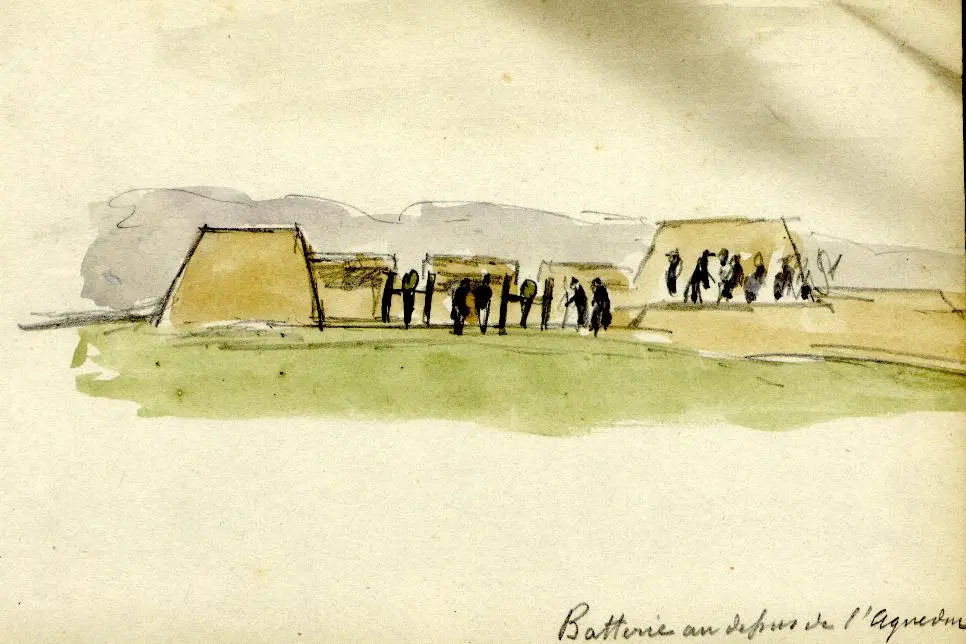 Batterie au dessus de l'Aqueduc